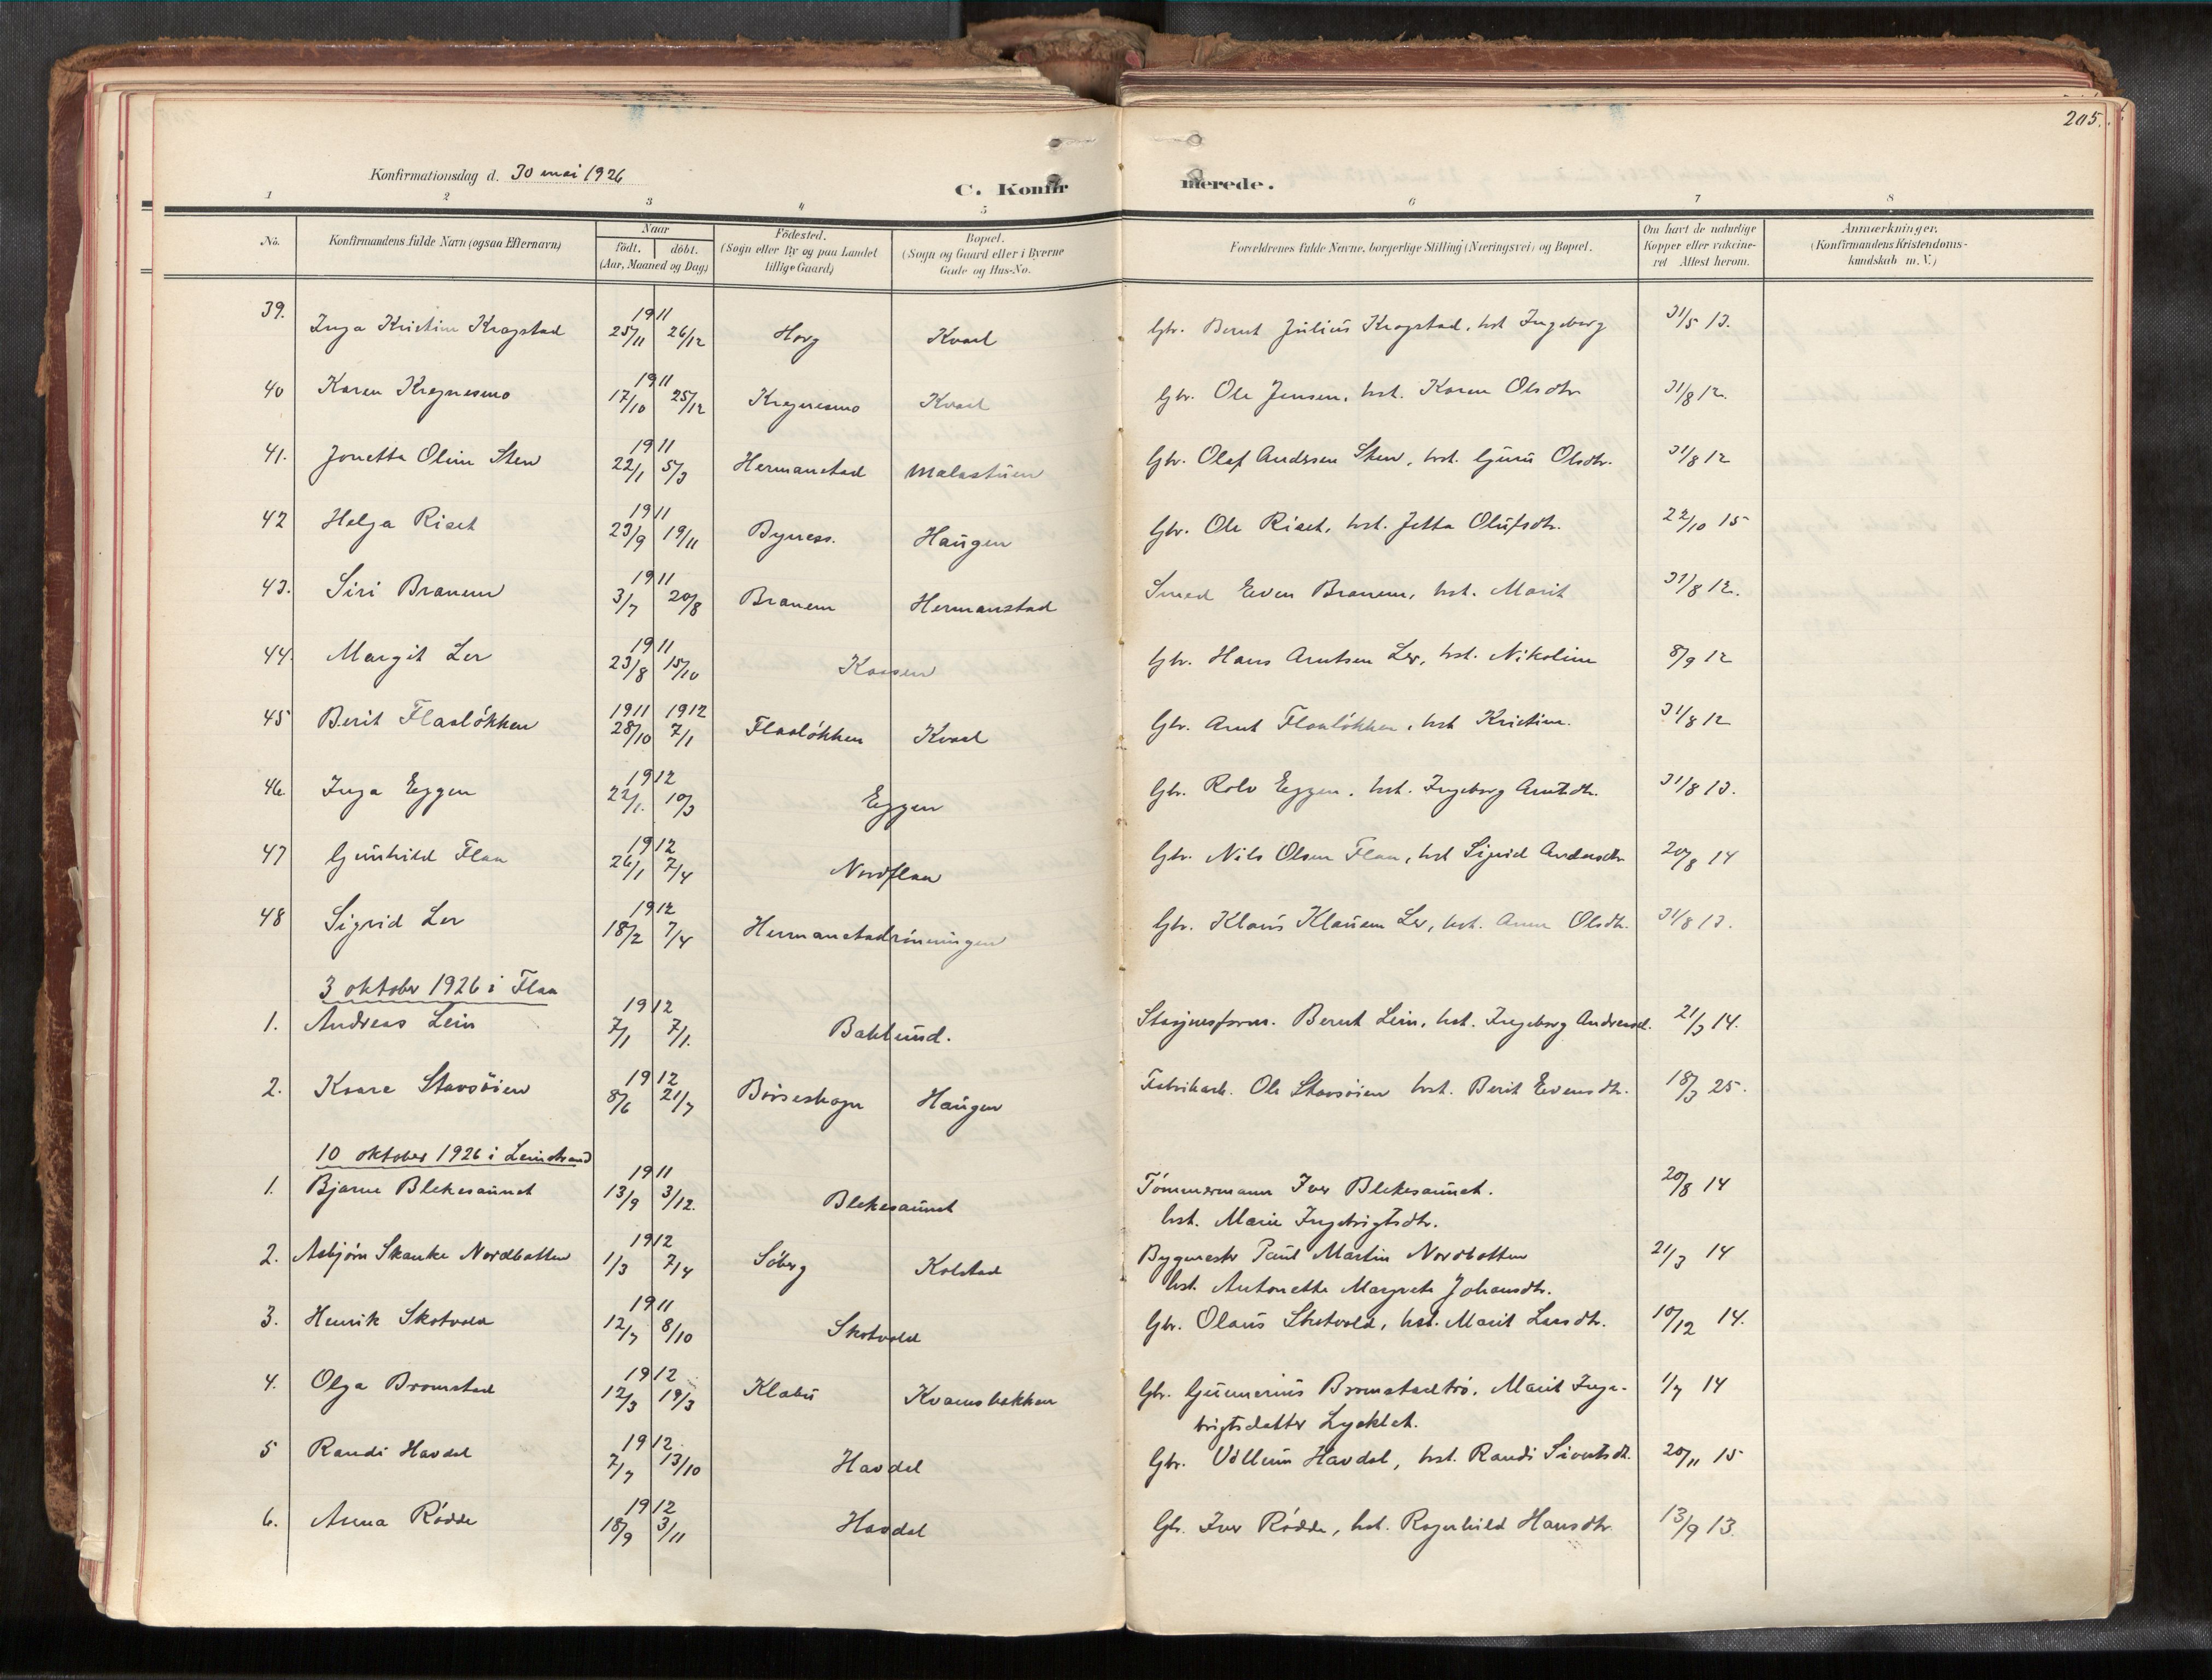 205.
Konfirmationsdag d. 30 mai 1926
C. Konfirmerede.
1 2 3 4 5 6 7 8
No. Konfirmandens fulde Navn (ogsaa Efternavn) Naar födt. döbt. (Aar, Maaned og Dag) Födested. (Sogn eller By og paa Landet tillige Gaard) Bopæl. (Sogn og Gaard eller i Byerne Gade og Hus-No. Forældrenes fulde Navne, borgerlige Stilling (Næringsvei) og Bopæl. Om havt de naturlige Kopper eller vakcineret Attest herom. Anmærkninger. (Konfirmandens Kristendomskundskab m. V.)
39. Inga Kristine Krogstad 1911 25/11 26/12 Horg Kvaal Gbr. Bernt Julius Krogstad, hst Ingeborg 31/5 13.
40 Karen Kregnesmo 1911 17/10 25/12 Kregnesmo Kvaal Gbr. Ole Jensen, hst. Karen Olsdtr 31/8 12.
41. Jonetta Oline Sten 1911 22/1 5/3 Hermanstad Malastuen Gbr. Olaf Andersen Sten, hst. Guru Olsdtr. 31/8 12
42 Helga Riset 1911 23/9 19/11 Byness. Haugen Gbr. Ole Riset, hst. Jetta Olufsdtr. 22/10 15
43. Siri Branem 1911 3/7 20/8 Branem Hermanstad Smed Even Branem, hst. Marit 31/8 12.
44. Margit Ler 1911 23/8 15/10 Kaasen Gbr. Hans Arntsen Ler, hst. Nikoline 8/9 12
45 Berit Flaaløkken 1911 1912 28/10 7/1 Flaaløkken Kvaal Gbr. Arnt Flaaløkken, hst Kristine. 31/8 12
46. Inga Eggen 1912 22/1. 10/3 Eggen Gbr. Rolv Eggen, hst. Ingeborg Arntdtr. 31/8 13.
47 Gunhild Flaa 1912 26/1 7/4 Nordflaa Gbr. Nils Olsen Flaa, hst Sigrid Andersdtr 20/8 14
48 Sigrid Ler 1912 18/2 7/4 Hermanstadrönningen Gbr. Klaus Klausen Ler, hst. Anne Olsdtr. 31/8 13.
3 oktober 1926 i Flaa
1. Andreas Lein 1912 7/1 7/1. Baklund. Stasjonsform. Bernt Lein, hst. Ingeborg Andreasd. 21/3 14.
2. Kaare Stavsöien 1912 8/6 21/7 Börseskogn Haugen Fabrikarb. Ole Stavsöien hst. Berit Evensdtr. 18/3 25.
10 oktober 1926 i Leinstrand
1. Bjarne Blekesaunet 1911 13/9 3/12. Blekesaunet Tömmermann Iver Blekesaunet.
hst. Marie Ingebrigtsdtr. 20/8 14
2. Asbjörn Skanke Nordbotten 1912 1/3 7/4 Söberg Kolstad Bygmestr Paul Martin Nordbotten
hst. Antonette Margrete Johansdtr. 21/3 14
3. Henrik Skotvold 1911 12/7 8/10 Skotvold Gbr. Olaus Skotvold, hst. Marit Larsdtr. 10/12 14.
4. Olga Bromstad 1912 12/3 19/3 Klæbu Kvamsbakken Gbr. Gunnerius Bromstadtrö, Marit Inge-
brigtsdatter Lysklet. 1/7 14
5 Randi Havdal 1912 7/7 13/10 Havdal Gbr. Villum Havdal, hst. Randi Sivertsdt. 20/11 15
6. Anna Rödde 1912 18/9 3/11 Havdal Gbr. Iver Rödde, hst. Ragnhild Hansdtr. 13/9 13.